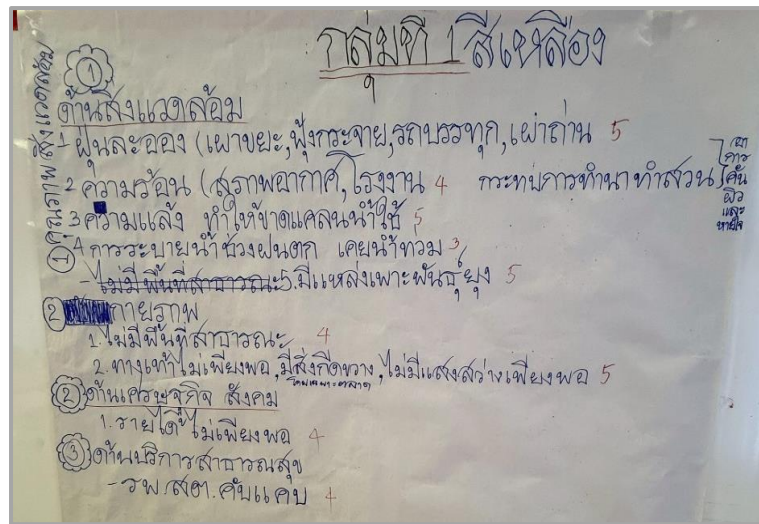 กลุ่มที่ 1 สีเหลือง
① ด้านสิ่งแวดล้อม
คุณภาพสิ่งแวดล้อม
①
1 ฝุ่นละออง (เผาขยะ, ฟุ้งกระจาย, รถบรรทุก, เผาถ่าน 5
2 ความร้อน (สภาพอากาศ, โรงงาน 4 กระทบการทำนา ทำสวน
อาการคันผิวและหายใจ
3 ความแล้ง ทำให้ขาดแคลนน้ำใช้ 5
4 การระบายน้ำช่วงฝนตก เคยน้ำท่วม 3
- ไม่มีพื้นที่สาธารณะ 5. มีแหล่งเพาะพันธุ์ยุง 5
② กายภาพ
1. ไม่มีพื้นที่สาธารณะ 4
2. ทางเท้าไม่เพียงพอ, มีสิ่งกีดขวาง, ไม่มีแสงสว่างเพียงพอ 5
โดยเฉพาะตลาด
② ด้านเศรษฐกิจ สังคม
1. รายได้ไม่เพียงพอ 4
③ ด้านบริการสาธารณสุข
- รพ.สต. คับแคบ 4